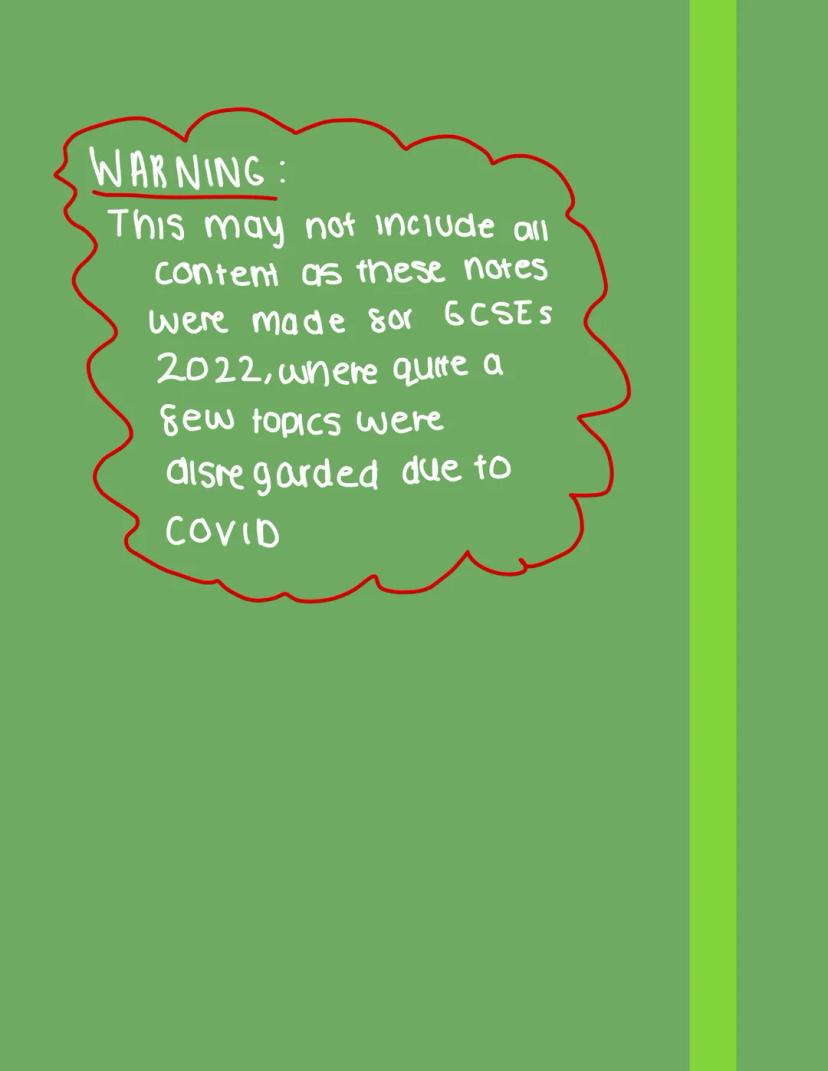 WARNING:
This may not include all
content as these notes
were made for GCSEs
2022, where quite a
few topics were
disregarded due to
COVID